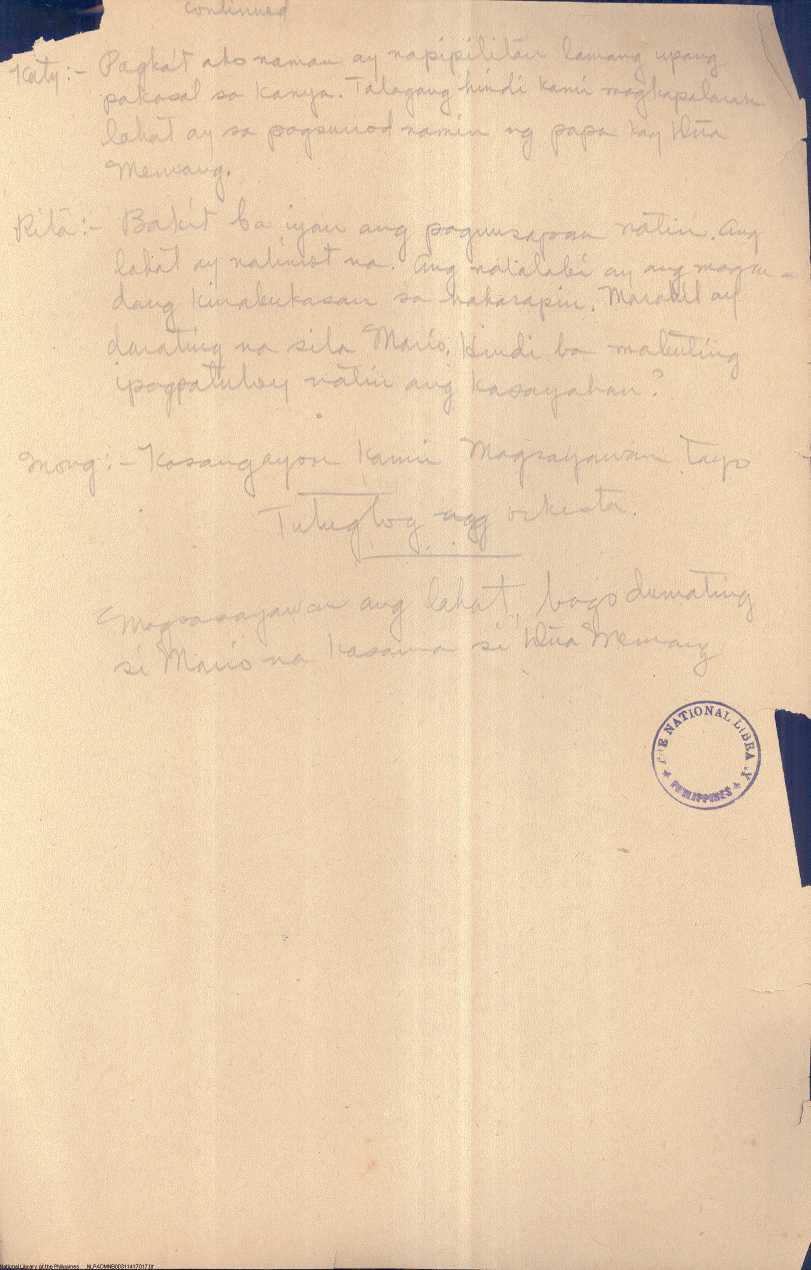 continued
Katy:- Pagka't ako naman ay napipilitan lamang upang
pakasal sa kanya. Talagang hindi kami magkapalaran
lahat ay sa pagsunod namin ng papa kay
Mewang.
Rita:- Bakit ba iyan ang paguusapan natin. Ang
lahat ay nalimot na. Ang natalabi ay ang magan-
dang kinabukasan sa haharapin. Marahil ay
darating na sila Mario. Hindi ba mabuting
ipagpatuloy natin ang kasayahan?
Mong:- Kasangayon kami Magsayawan tayo
Tutugtog ang orkesta.
Magsasayawan ang lahat, bago dumating
si Mario na kasama si Mewang
THE NATIONAL LIBRARY
PHILIPPINES
National Library of the Philippines